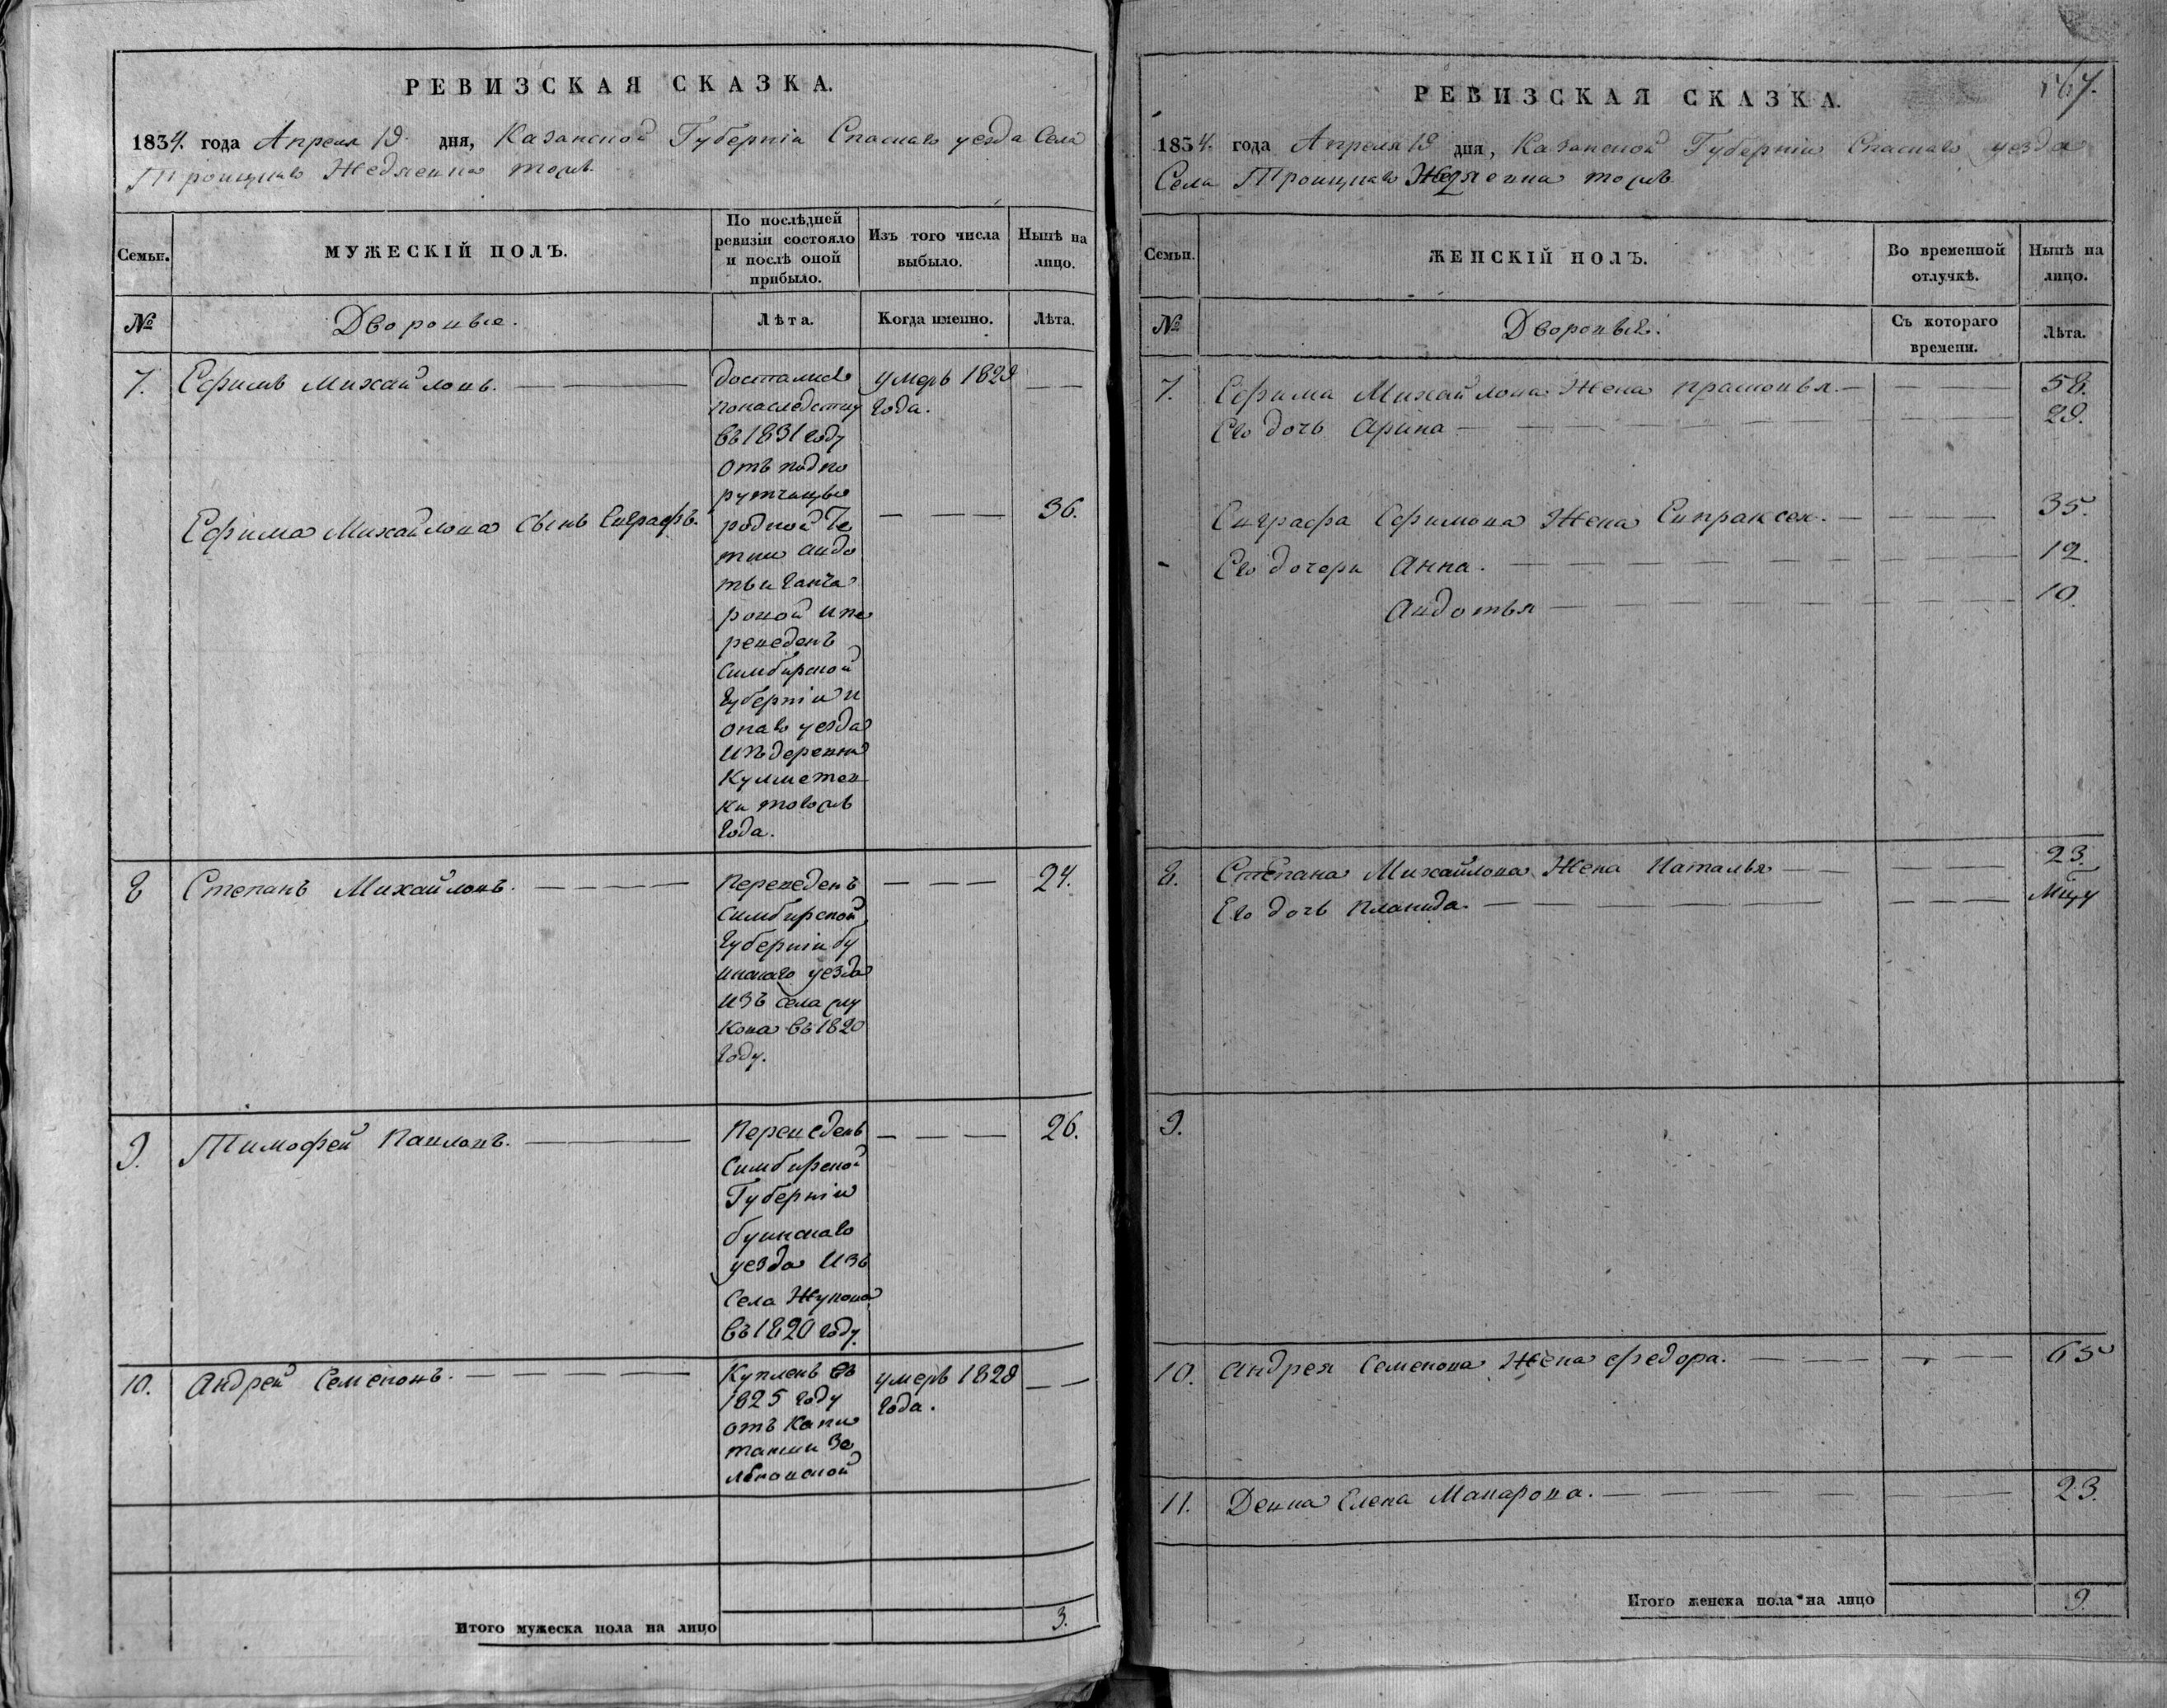 РЕВИЗСКАЯ СКАЗКА.
1834. года Апреля 19. дня, Казанской Губерніи Спаскаго уезда Села
Троицкаго
МУЖЕСКІЙ ПОЛЪ.
Семьи.
По послѣдней
ревизіи состояло
и послѣ оной
прибыло.
Изъ того числа
выбыло.
Нынѣ на
лицо.
№
Дворовые.
Лѣта.
Когда именно.
Лѣта.
7. Ефимъ Михайловъ.
Ефима Михайлова Сынъ Евграфъ.
достался
понаследству
въ 1831 году
отъ подпо
рутчицы
родной Те
тки авдо
тьи
и пе
реведенъ
Симбирской
Губерніи
уезда
изъ деревни
года.
умеръ 1829
года.
36.
8 Степанъ Михайловъ.
Переведенъ
Симбирской
Губерніи бу
инскаго уезда
изъ села
въ 1820
году.
24.
9. Тимофей Павловъ.
Переведенъ
Симбирской
Губерніи
буинскаго
уезда Изъ
Села Жукова
въ 1820 году.
26.
10. Андрей Семеновъ.
Купленъ въ
1825 году
отъ Капи
танши
умеръ 1828
года.
Итого мужеска пола на лицо
3.
РЕВИЗСКАЯ СКАЗКА.
1834. года Апреля 19 дня, Казанской Губерніи Спаскаго уезда
Села Троицкаго
Семьи.
ЖЕНСКІЙ ПОЛЪ.
Во временной
отлучкѣ.
Нынѣ на
лицо.
№
Дворовыя.
Съ котораго
времени.
Лѣта.
7. Ефима Михайлова Жена прасковья. 58.
Его дочь Арина 29.
Евграфа Ефимова Жена Евпраксея. 35.
Его дочери Анна. 12.
Авдотья 10.
8. Степана Михайлова Жена Наталья 23.
Его дочь
9.
10. Андрея Семенова Жена федора. 65
11. Девка Елена Макарова. 23.
Итого женска пола на лицо
9.